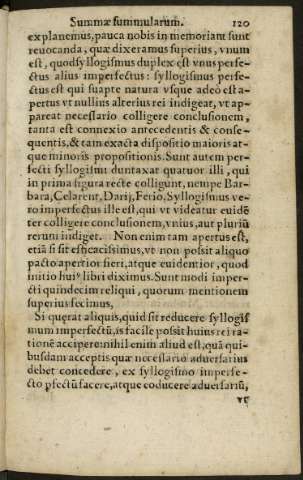 Summæ summularum. 120
explanemus, pauca nobis in memoriam sunt
reuocanda, quæ dixeramus superius, vnum
est, quod syllogismus duplex est vnus perfe-
ctus alius imperfectus: syllogismus perfe-
ctus est qui suapte natura vsque adeo est a-
pertus vt nullius alterius rei indigeat, vt ap-
pareat necessario colligere conclusionem,
tanta est connexio antecedentis & conse-
quentis, & tam exacta dispositio maioris at-
que minoris propositionis. Sunt autem per-
fecti syllogismi duntaxat quatuor illi, qui
in prima figura recte colligunt, nempe Bar-
bara, Celarent, Darij, Ferio. Syllogismus ve-
ro imperfectus ille est, qui vt videatur euidē
ter colligere conclusionem, vnius, aut pluriū
rerum indiget. Non enim tam apertus est,
etiā si sit efficacissimus, vt non possit aliquo
pacto apertior fieri, atque euidentior, quod
initio huiꝰ libri diximus. Sunt modi imper-
cti quindecim reliqui, quorum mentionem
superius fecimus.
Si quęrat aliquis, quid sit reducere syllogis
mum imperfectū, is facile possit huius rei ra-
tionē accipere: nihil enim aliud est, quā qui-
busdam acceptis quæ necessario aduersarius
debet concedere, ex syllogismo imperfe-
cto pfectū facere, atque cōducere aduersariū,
vt